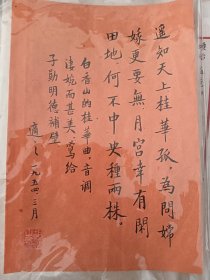 遥知天上桂華孤，為問嫦
娥更要無月宮幸有閑
田地何不中央種兩株。
白香山的桂華曲，音調
淒婉而甚美，寫給
子勛明德補壁
適之 一九五四、三月